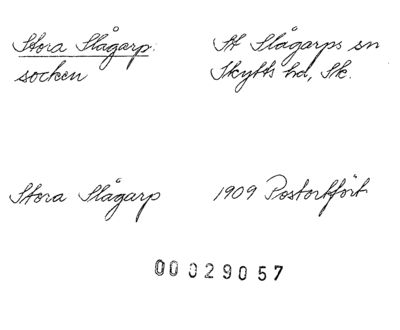 Stora Slågarp: St Slågarps sn
socken Skytts hd, Sk.
Stora Slågarp 1909 Postortfört
00029057